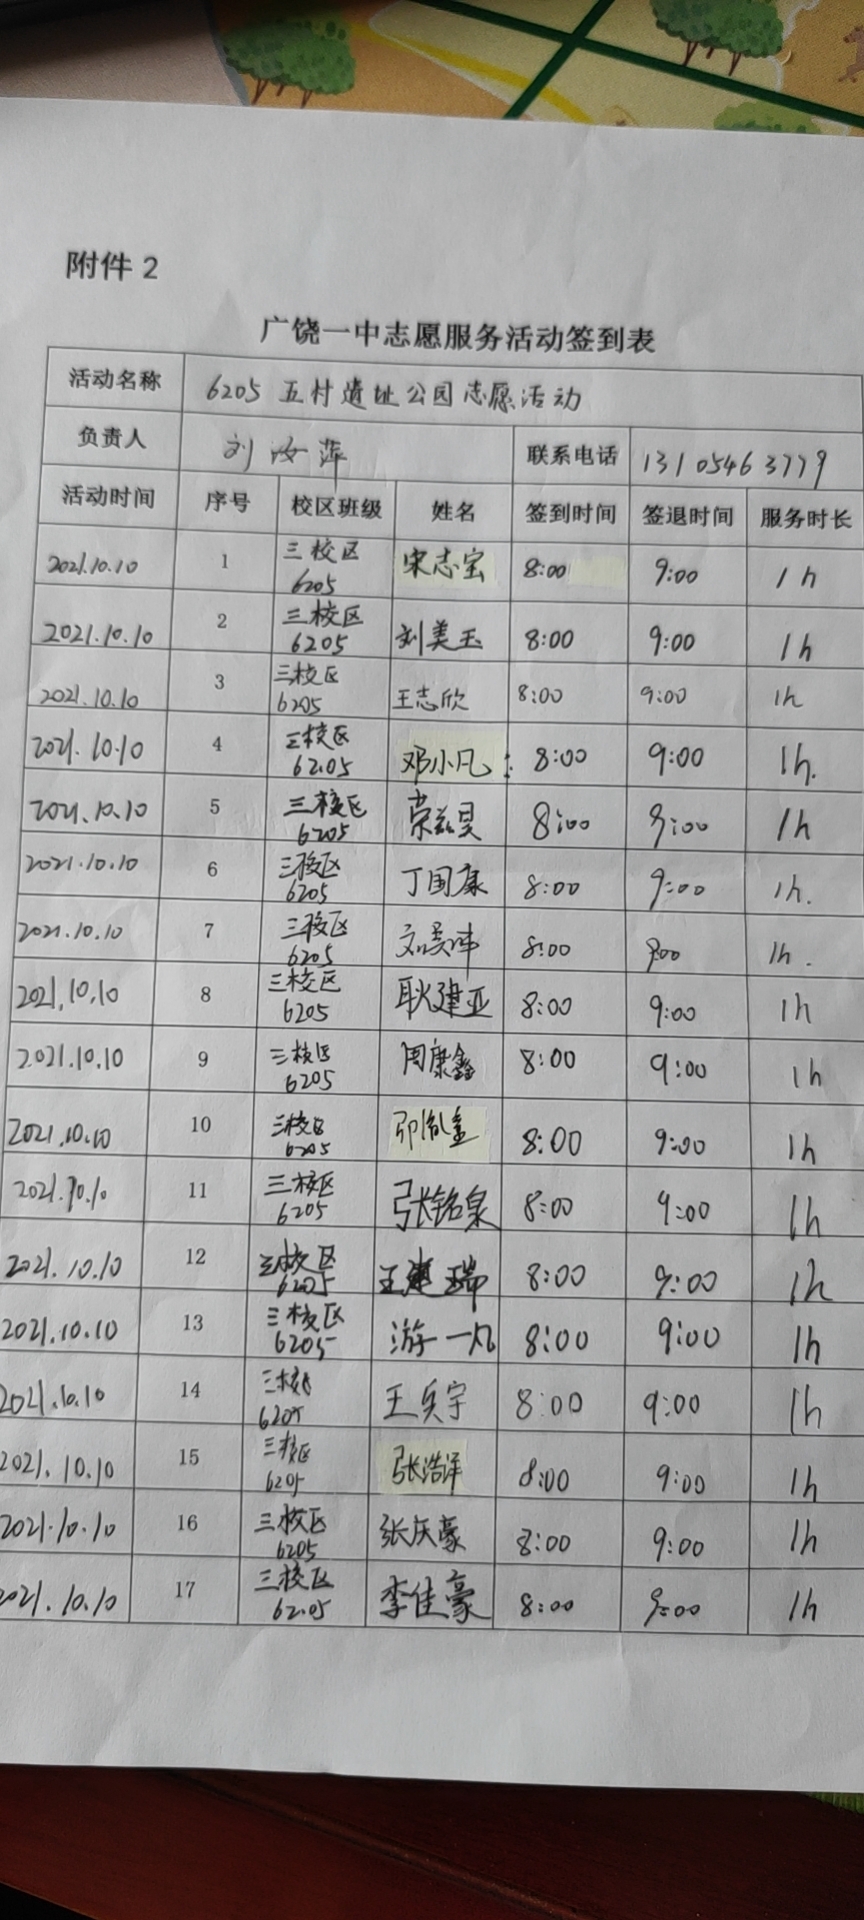 附件 2
广饶一中志愿服务活动签到表
活动名称 6205 五村遗址公园志愿活动
负责人 刘汝萍 联系电话 13105463779
活动时间 序号 校区班级 姓名 签到时间 签退时间 服务时长
2021.10.10 1 三校区 6205 宋志宝 8:00 9:00 1h
2021.10.10 2 三校区 6205 刘美玉 8:00 9:00 1h
2021.10.10 3 三校区 6205 王志欣 8:00 9:00 1h
2021.10.10 4 三校区 6205 邓小凡 8:00 9:00 1h.
2021.10.10 5 三校区 6205 荣兹昊 8:00 9:00 1h
2021.10.10 6 三校区 6205 丁国康 8:00 9:00 1h.
2021.10.10 7 三校区 6205 8:00 9:00 1h.
2021.10.10 8 三校区 6205 耿建亚 8:00 9:00 1h
2021.10.10 9 三校区 6205 周康鑫 8:00 9:00 1h
2021.10.10 10 三校区 6205 8:00 9:00 1h
2021.10.10 11 三校区 6205 张铭泉 8:00 9:00 1h
2021.10.10 12 三校区 6205 8:00 9:00 1h
2021.10.10 13 三校区 6205 游一凡 8:00 9:00 1h
2021.10.10 14 三校区 6205 8:00 9:00 1h
2021.10.10 15 三校区 6205 张浩洋 8:00 9:00 1h
2021.10.10 16 三校区 6205 张庆豪 8:00 9:00 1h
2021.10.10 17 三校区 6205 李佳豪 8:00 9:00 1h